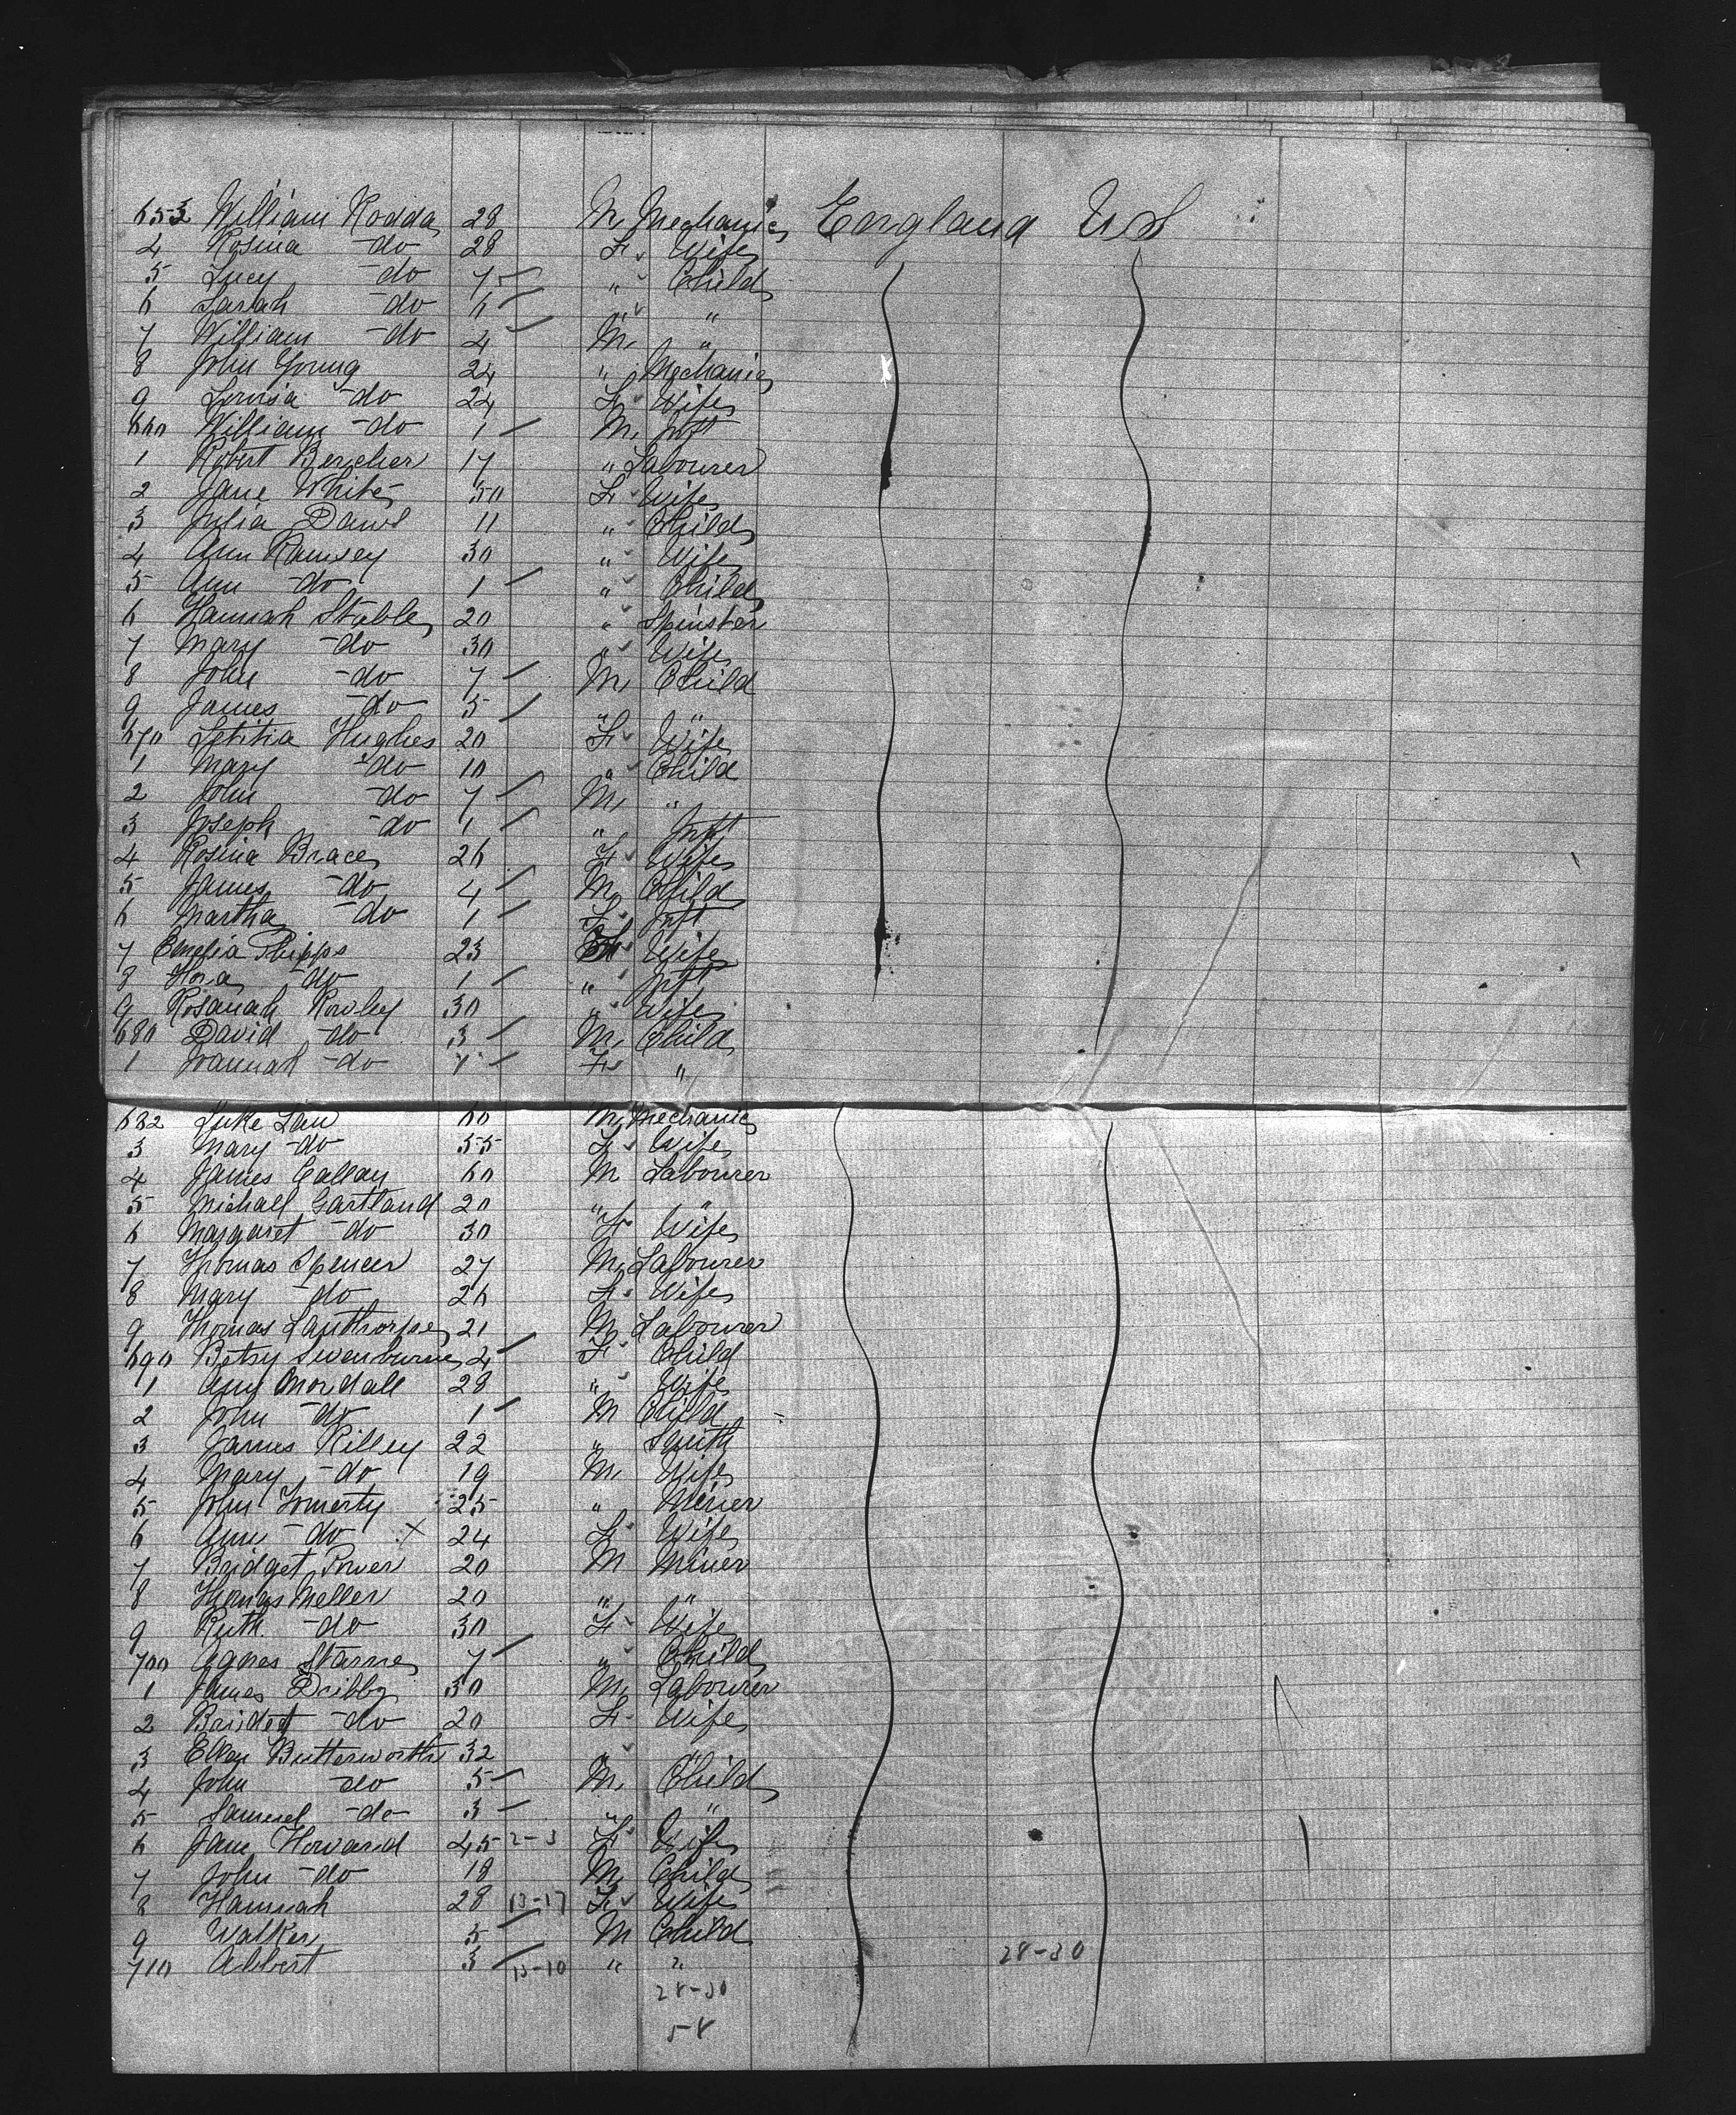 653 William Rodda 28 M Mechanic England US
4 Rosina -do 28 F Wife
5 Lucy -do 7 " Child
6 Sarah -do 6 " "
7 William -do 4 M "
8 John Young 24 " Mechanic
9 Louisa -do 24 F Wife
660 William -do 1 M Inft
1 Robert 17 " Labourer
2 Jane White 50 F Wife
3 Julia Dawe 11 " Child
4 Ann Ramsey 30 " Wife
5 Ann -do 1 " Child
6 Hannah Stable 20 " Spinster
7 Mary -do 30 " Wife
8 John -do 7 M Child
9 James -do 5 " "
670 Letitia Hughes 20 F Wife
1 Mary -do 10 " Child
2 John -do 7 M "
3 Joseph -do 1 " Inft
4 Rosina Brace 26 F Wife
5 James -do 4 M Child
6 Martha -do 1 F Inft
7 Emelia Phipps 23 F Wife
8 -do 1 " Inft
9 Rosanah Rowley 30 " Wife
680 David -do 3 M Child
1 -do F "
682 Luke Law 60 M Mechanic
3 Mary -do 55 F Wife
4 James Callan 60 M Labourer
5 Michael Gartland 20 " "
6 Margaret -do 30 F Wife
7 Thomas Spencer 27 M Labourer
8 Mary -do 26 F Wife
9 Thomas Lanthorpe 21 M Labourer
690 Betsy Swenburne 4 F Child
1 Ann Mordall 28 " Wife
2 John -do 1 M Child
3 James Rilley 22 " Smith
4 Mary -do 19 M Wife
5 John 25 " Miner
6 Ann -do x 24 F Wife
7 Bridget Power 20 M Miner
8 Thomas Meller 20 " "
9 Ruth -do 30 F Wife
700 Agnes Starne 7 " Child
1 James Dribby 30 M Labourer
2 Bridget -do 20 F Wife
3 Ellen Butterworth 32 " "
4 John -do 5 M Child
5 Samuel -do 3 " "
6 Jane Howard 45 2-3 F Wife
7 John -do 18 M Child
8 Hannah 28 13-17 F Wife
9 Walker 5 M Child
710 Albert 3 13-10 " " 28-30
28-30
58